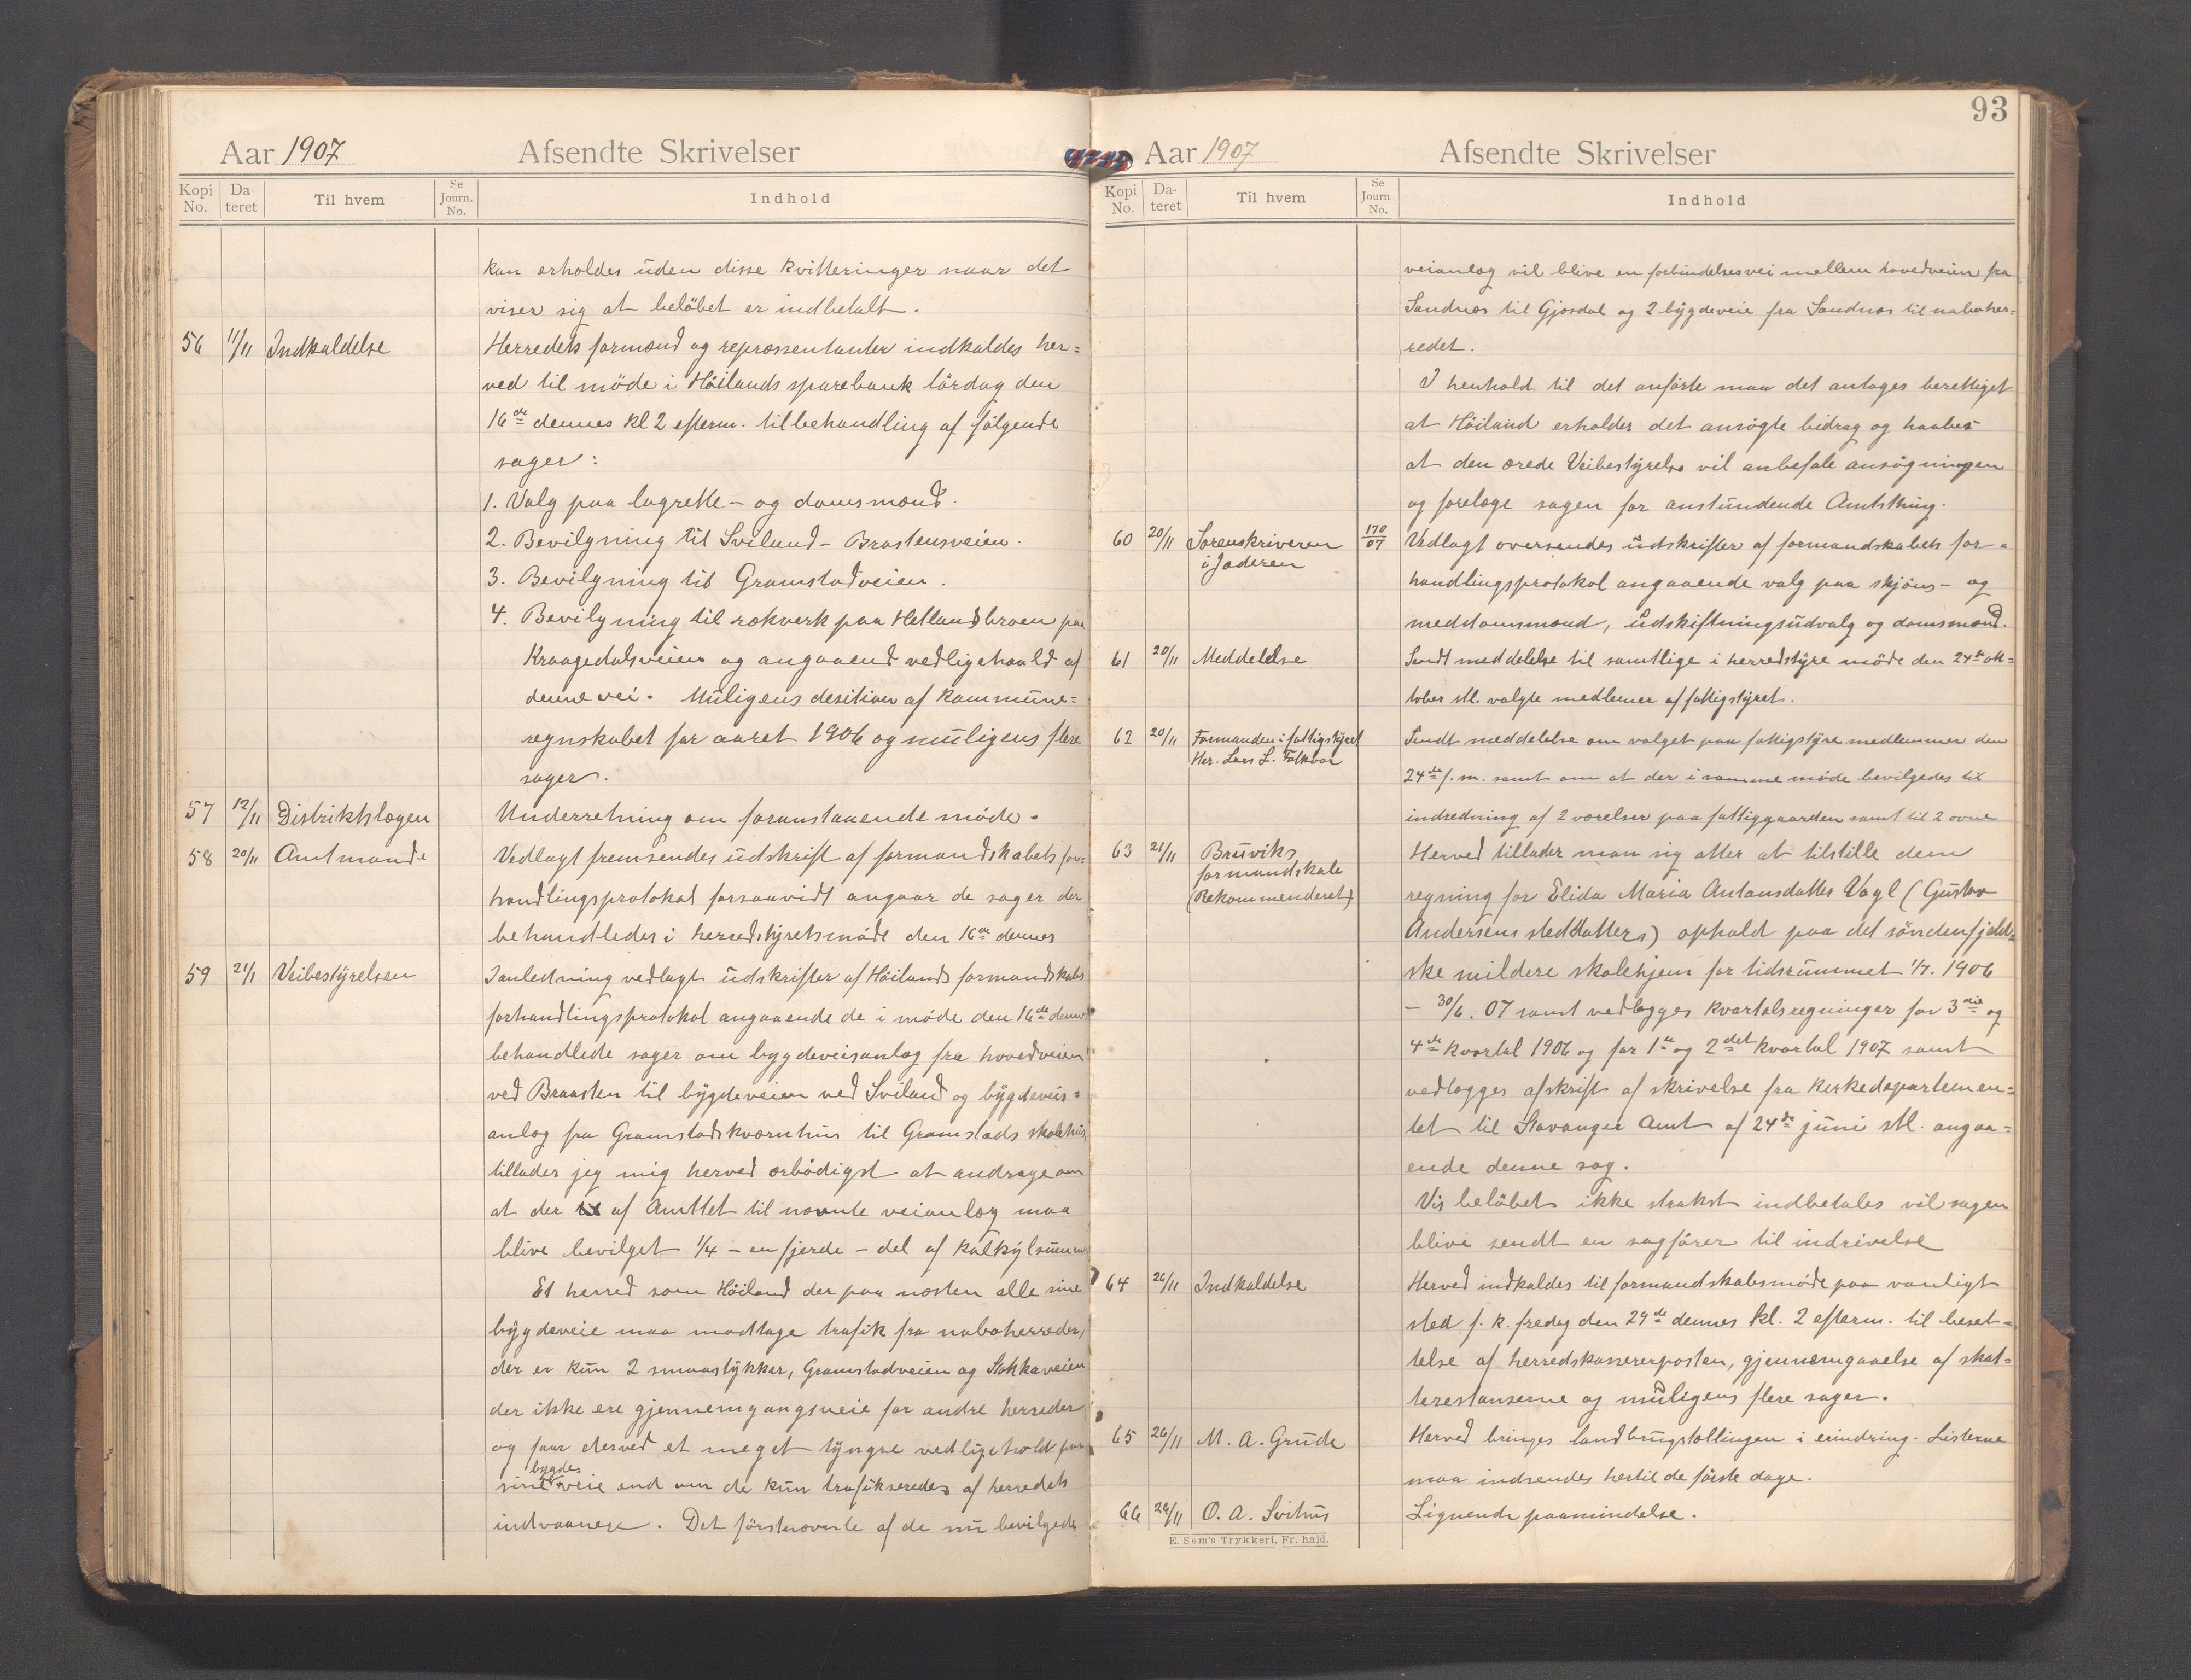 93
Aar 1907 Afsendte Skrivelser
Kopi No. Da teret Til hvem Se Journ. No. Indhold
kan erholdes uden disse kvitteringer naar det
viser sig at beløbet er indbetalt.
56 11/11 Indkaldelse Herredets formænd og repræssentanter indkaldes her=
ved til møde i Høilands sparebank lørdag den
16de dennes kl 2 efterm. til behandling af følgende
sager:
1. Valg paa lagrette- og domsmænd.
2. Bevilgning til Sviland - Brastensveien.
3. Bevilgning til Gramstadveien.
4. Bevilgning til rækverk paa Hetlandbroen paa
Kraagedalsveien og angaaend vedligehould af
denne vei. Muligens desition af kommune=
regnskabet for aaret 1906 og muligens flere
sager.
57 12/11 Distriktslægen Underretning om foranstaaende møde.
58 20/11 Amtmande Vedlagt fremsendes udskrift af formandskabets for=
handlingsprotokol forsaavidt angaar de sager der
behandledes i herredstyretsmøde den 16de dennes
59 21/1 Veibestyrelsen I anledning vedlagt udskrifter af Høilands formandskabs
forhandlingsprotokol angaaende de i møde den 16de dennes
behandlede sager om bygdeveisanlæg fra hovedveien
ved Braasten til bygdeveien ved Sviland og bygdeveis=
anlæg fra Gramstadskværnhus til Gramstads skolehus
tillader jeg mig herved ærbødigst at andrage om
at der af Amttet til nævnte veianlæg maa
blive bevilget 1/4 - en fjerde - del af kalkylsummen
Et herred som Høiland der paa næsten alle sine
bygdeveie maa modtage trafik fra naboherreder,
der er kun 2 smaastykker, Gramstadveien og Stokkaveien
der ikke ere gjennemgangsveie for andre herreder
og faar derved et meget tyngre vedligehold paa
sine bygdeveie end om de kun trafikseredes af herredets
indvaanere. Det førstnævnte af de nu bevilgede
Aar 1907 Afsendte Skrivelser
Kopi No. Da- teret Til hvem Se Journ No. Indhold
veianlæg vil blive en forbindelsesvei mellem hovedveien fra
Sandnæs til Gjæsdal og 2 bygdeveie fra Sandnæs til naboher=
redet.
I henhold til det anførte maa det antages berettiget
at Høiland erholder det ansøgte bidrag og haabes
at den ærede Veibestyrelse vil anbefale ansøgningen
og forelæge sagen for anstundende Amtsthing.
60 20/11 Sorenskriveren i Jæderen 170/07 Vedlagt oversendes udskrifter af formandskabets for=
handlingsprotokol angaaende valg paa skjøns- og
meddomsmænd, udskiftningsudvalg og domsmænd.
61 20/11 Meddelelse Sendt meddelelse til samtlige i herredstyre møde den 24de ok=
tober stl. valgte medlemer af fattigstyret.
62 20/11 Formanden i fattigstyret Her. Lars L. Folkvor Sendt meddelelse om valget paa fattigstyre medlemmer den
24de f. m. samt om at der i samme møde bevilgedes til
indredning af 2 værelser paa fattiggaarden samt til 2 ovne
63 21/11 Bruviks formandskab (Rekommenderet) Herved tillader man sig atter at tilstille dem
regning for Elida Maria Antonsdatter Vagl (Gustav
Andersens steddatters) ophold paa det søndenfjeld=
ske mildere skolehjem for tidsrummet 1/7. 1906
- 30/6. 07 samt vedlægges kvartalsregninger for 3die og
4de kvartal 1906 og for 1ste og 2det kvartal 1907 samt
vedlægges afskrift af skrivelse fra Kirkedepartemen=
tet til Stavanger Amt af 24de juni stl. angaa=
ende denne sag.
Vis beløbet ikke strakst indbetales vil sagen
blive sendt en sagfører til indrivelse
64 26/11 Indkaldelse Herved indkaldes til formandskabsmøde paa vanligt
sted f. k. fredag den 29de dennes kl. 2 efterm. til beset=
telse af herredskassererposten, gjennemgaaelse af skat=
terestanserne og muligens flere sager.
65 26/11 M. A. Grude Herved bringes landbrugstællingen i erindring. Listerne
maa indsendes hertil de første dage.
66 26/11 O. A. Svihus Lignende paamindelse.
E. Sem's Trykkeri, Fr. hald.